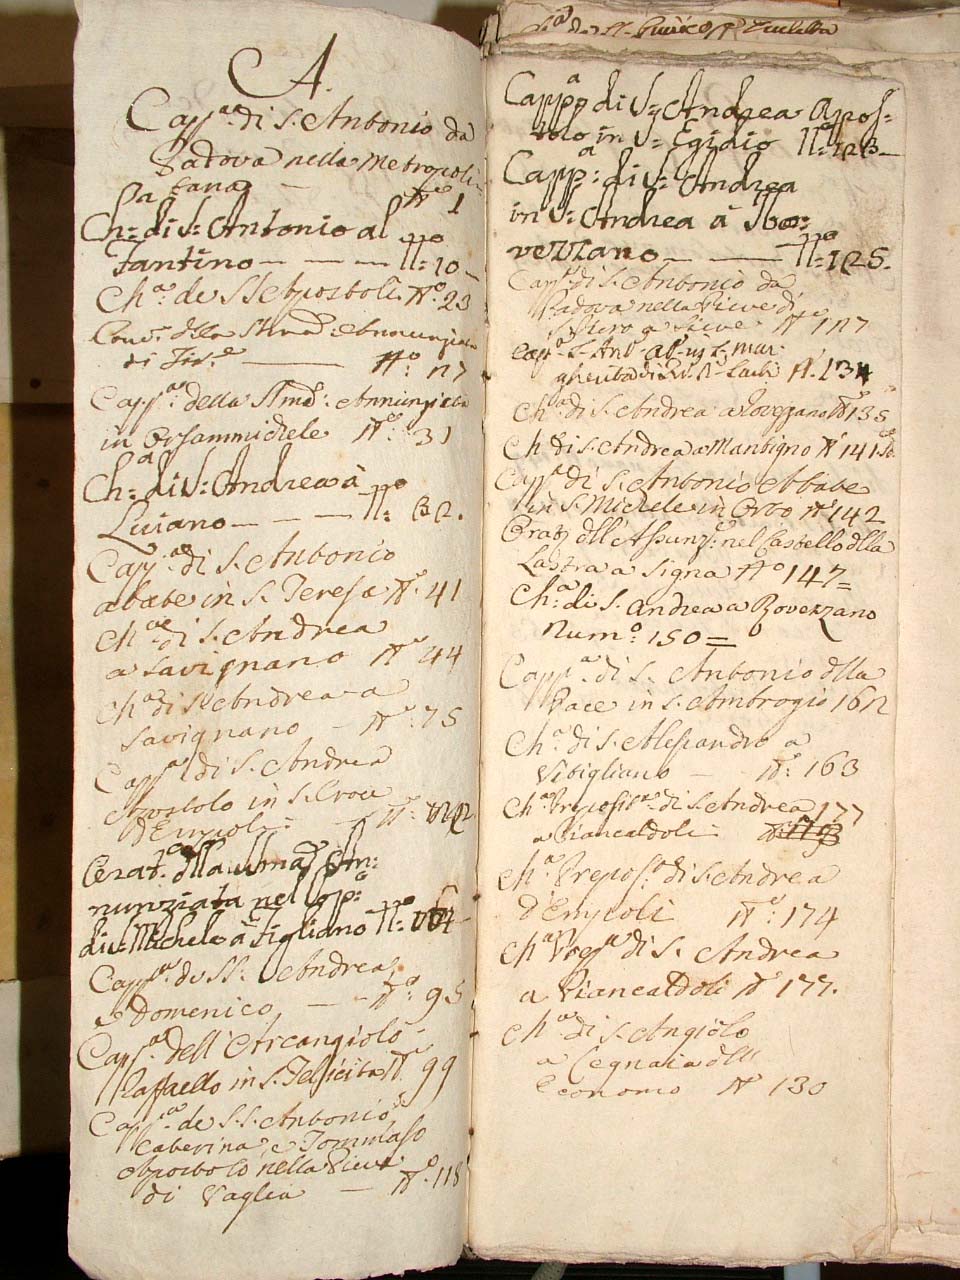 A.
Capp.na di S. Antonio da
Padova nella Metropoli-
tana — N.o 1
Ch.a di S. Antonio al
Fantino — — — N.o 10 —
Ch.a de SS. Apostoli. N.o 23
di Fir.e — N.o 27
Capp.na della SS.ma Annunziata
in Orsammichele N.o 31
Ch.a di S. Andrea à
Luiano — — — N.o 32.
Capp.na di S. Antonio
abate in S. Teresa N.o 41
Ch.a di S. Andrea
a Savignano N.o 44
Ch.a di S. Andrea a
Savignano — N.o 75
Capp.na di S. Andrea
Apostolo in S. Croce
d'Empoli N.o
Orat.o dlla SS.ma An:
nunziata nel Pop.o
di S. Michele à Figliano N.o
Capp.na de SS. Andrea,
e Domenico, — — N.o 95
Capp.na dell' Arcangiolo
Raffaello in S. Felicita N.o 99
Capp.na de S.S. Antonio
Caterina, e Tommaso
Apostolo nella Pieve
di Vaglia — N.o 118
de SS. Quirico e Iulitta
Capp.a di S. Andrea Apos:
tolo in S. Egidio N.o 123 —
Capp.a di S. Andrea
in S. Andrea à Ro:
vezzano — — N.o 125.
Capp.a di S. Antonio da
Padova nella Pieve di
S. Piero a Sieve N.o 127
Capp.a S. Ant.o ab. in S. Mar
gherita N.o 134
Ch.a di S. Andrea a Rovezzano N.o 135
Ch.a di S. Andrea a Mantigno N.o 141
Capp.a di S. Antonio Abbate
in S. Michele in Orto N.o 142
Orat.o dll' Assunz.e nel Castello dlla
Lastra a Signa N.o 147=
Ch.a di S. Andrea a Rovezzano
Num.o 150=
Capp.a di S. Antonio dlla
Pace in S. Ambrogio 162
Ch.a di S. Alessandro a
Vitigliano — N.o 163
Ch.a Preposit.a di S. Andrea 177
a Biancaldoli
Ch.a Prepos.a di S. Andrea
d'Empoli N.o 174
Ch.a di S. Andrea
a Biancaldoli N.o 177.
Ch.a di S. Angiolo
a Legnaia dll
Economo N.o 130